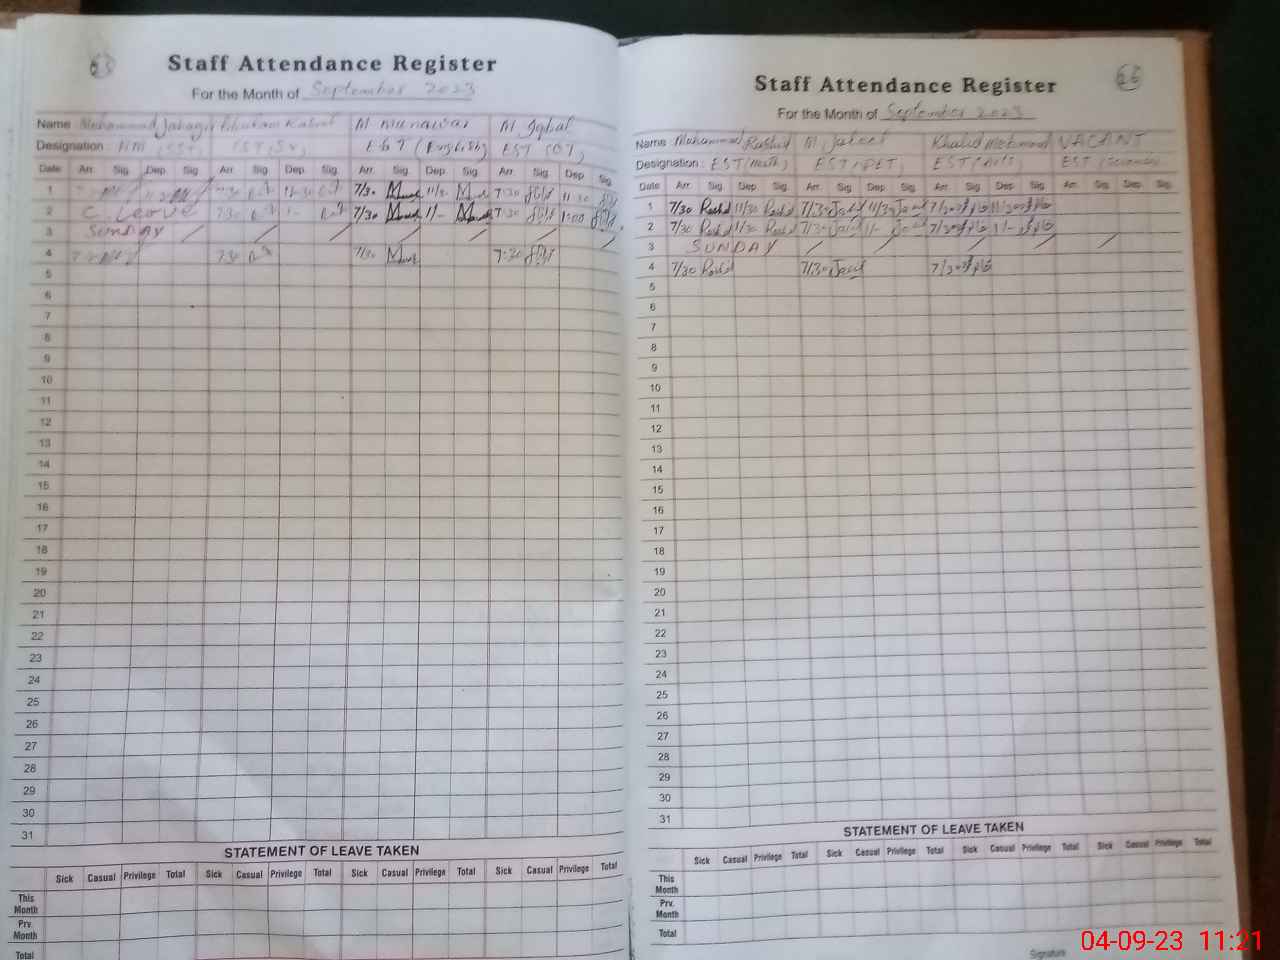 Staff Attendance Register
For the Month of September 2023
Name Mohammad Jahagir Ghulam M. Munawar M. Iqbal
Designation : HM (SST) EST (English) EST (OT)
Date Arr. Sig. Dep. Sig. Arr. Sig. Dep. Sig. Arr. Sig. Dep Sig. Arr. Sig. Dep Sig.
1 7/30 11/30 7:30 11:30
2 C. Leave 7:30 7/30 11/- 7:30 11:00
3 SUNDAY
4 7:30 7/30 7:30
5
6
7
8
9
10
11
12
13
14
15
16
17
18
19
20
21
22
23
24
25
26
27
28
29
30
31
STATEMENT OF LEAVE TAKEN
Sick Casual Privilege Total Sick Casual Privilege Total Sick Casual Privilege Total Sick Casual Privilege Total
This Month
Prv. Month
Total
66
Staff Attendance Register
For the Month of September 2023
Name : Mohammad Rashid M. Jaleel Khalid Mehmood VACANT
Designation : EST (Math) EST (PET) EST (Arts) EST (Science)
Date Arr. Sig. Dep Sig. Arr. Sig. Dep Sig. Arr. Sig. Dep Sig. Arr. Sig. Dep Sig.
1 7/30 Rashid 11/30 Rashid 7/30 Jaleel 11/30 Jaleel 7/30 11/30
2 7/30 Rashid 11/30 Rashid 7/30 Jaleel 11/- Jaleel 7/30 11/-
3 SUNDAY
4 7/30 Rashid 7/30 Jaleel 7/30
5
6
7
8
9
10
11
12
13
14
15
16
17
18
19
20
21
22
23
24
25
26
27
28
29
30
31
STATEMENT OF LEAVE TAKEN
Sick Casual Privilege Total Sick Casual Privilege Total Sick Casual Privilege Total Sick Casual Privilege Total
This Month
Prv. Month
Total
Signature
04-09-23 11:21